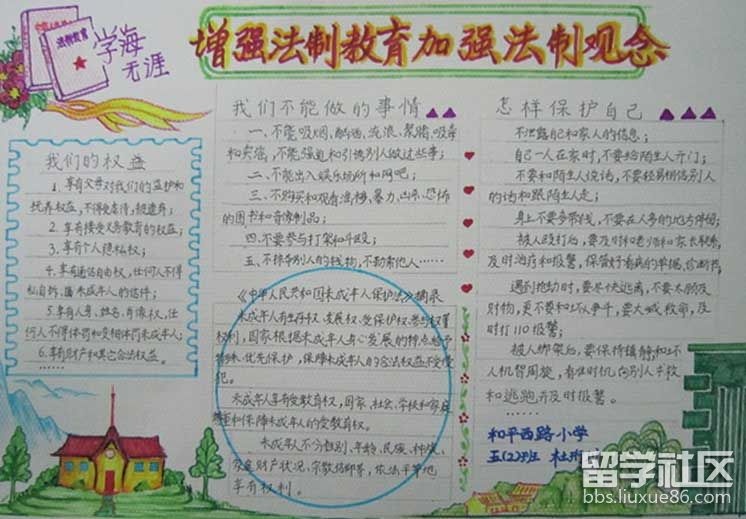 法制教育
学海
无涯
增强法制教育加强法制观念
我们的权益
1.享有父母对我们的监护和
抚养权益,不得虐待,
2.享有接受义务教育的权益;
3.享有个人隐私权;
4.享有通信自由权,任何人不得
私自拆 未成年人的信件;
5.享有人身、姓名、肖像权,任
何人不得体罚和变相体罚未成年人;
6.享有财产和其它合法权益。
……
我们不能做的事情
一、不能吸烟、酗酒、流浪、聚赌、吸毒
和卖淫,不能强迫和引诱别人做这些事;
二、不能出入娱乐场所和网吧;
三、不购买和观看淫秽、暴力、凶杀、恐怖
的图书和音像制品;
四、不要参与打架和斗殴;
五、不掠夺别人的钱物,不勒索他人……
《中华人民共和国未成年人保护法》摘录
未成年人有生存权、发展权、受保护权、参与权等
权利,国家根据未成年人身心发展的特点给予
特殊、优先保护,保障未成年人的合法权益不受侵
犯。
未成年人享有受教育权,国家、社会、学校和家庭
尊重和保障未成年人的受教育权。
未成年人不分性别、年龄、民族、种族、
家庭财产状况、宗教信仰等,依法平等地
享有权利。
怎样保护自己
不泄露自己和家人的信息;
自己一人在家时,不要给陌生人开门;
不要和陌生人说话,不要轻易相信别人
的话和跟陌生人走;
身上不要多带钱,不要在人多的地方停留;
被人殴打后,要及时和老师和家长联系,
及时治疗和报警,保管好看病的单据、诊断书;
遇到抢劫时,要尽快逃离,不要太顾及
财物,更不要和坏人争斗,要大喊救命,及
时打110报警;
被人绑架后,要保持镇静,和坏
人机智周旋,有准时机向别人求救
和逃跑并及时报警。
……
和平西路小学
五(2)班 杜
留学社区
bbs.liuxue86.com